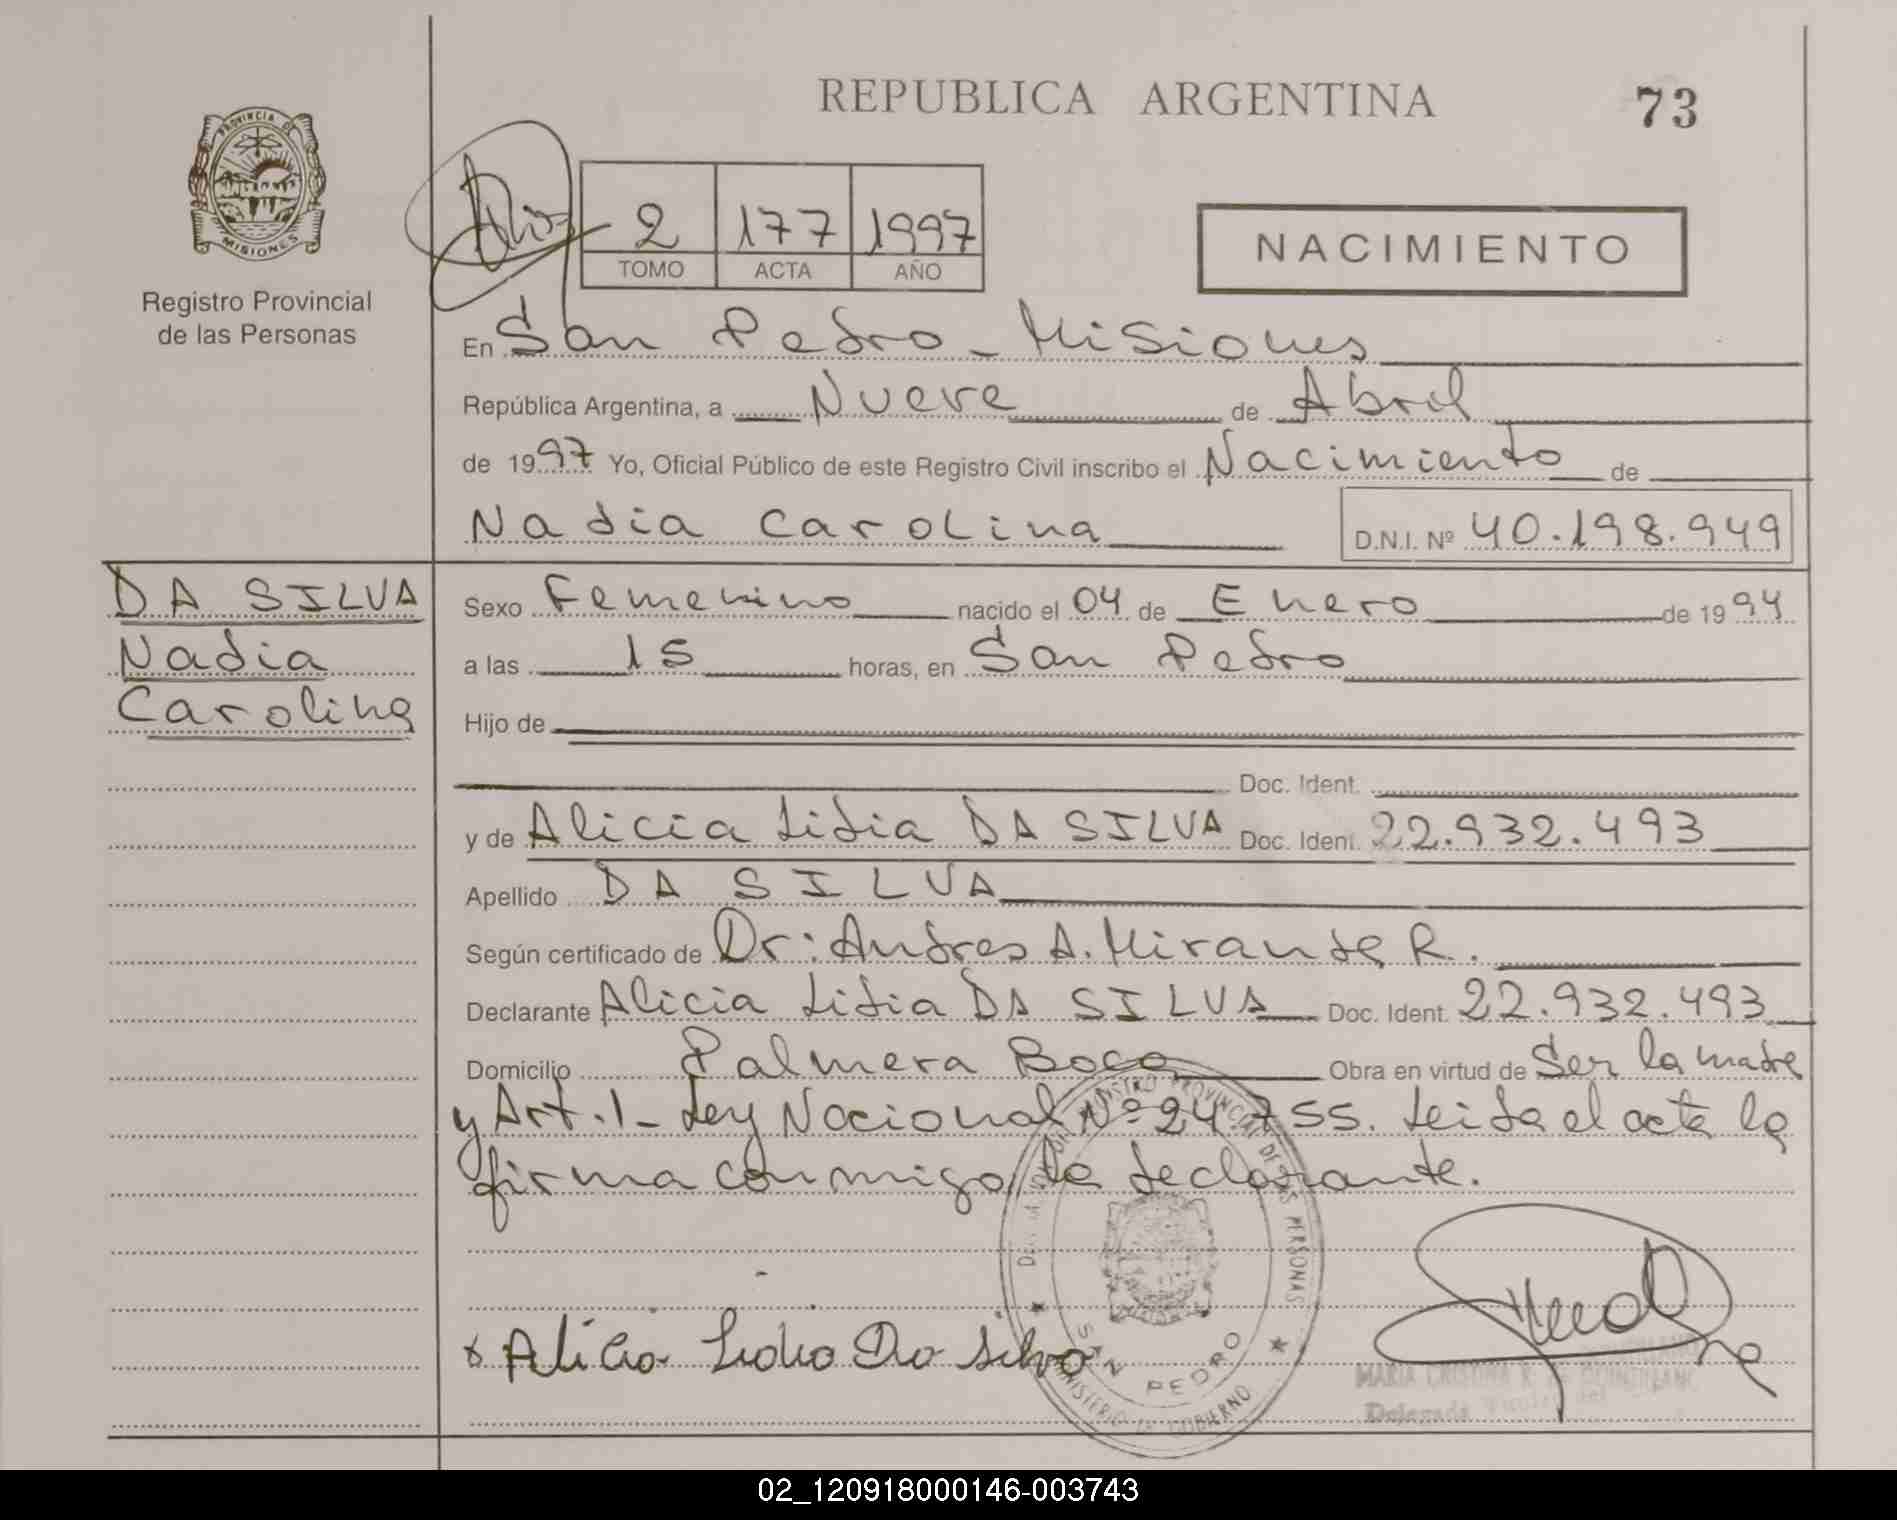 REPUBLICA ARGENTINA
73
PROVINCIA DE
MISIONES
Registro Provincial
de las Personas
2 177 1997
TOMO ACTA AÑO
NACIMIENTO
En San Pedro - Misiones
República Argentina, a Nueve de Abril
de 1997 Yo, Oficial Público de este Registro Civil inscribo el Nacimiento de
Nadia Carolina D.N.I. Nº 40.198.949
DA SILVA
Nadia
Carolina
Sexo Femenino nacido el 04 de Enero de 1994
a las 15 horas, en San Pedro
Hijo de
Doc. Ident.
y de Alicia Lidia DA SILVA Doc. Ident. 22.932.493
Apellido DA SILVA
Según certificado de Dr: Andres A. Miranda R.
Declarante Alicia Lidia DA SILVA Doc. Ident. 22.932.493
Domicilio Palmera Boca Obra en virtud de Ser la madre
y Art. 1 - Ley Nacional Nº 24.755. Leida el acta la
firma conmigo la declarante.
REGISTRO PROVINCIAL DE LAS PERSONAS
SAN PEDRO
MINISTERIO DE GOBIERNO
x Alicia Lidia Da Silva
MARIA CRISTINA R. DE
Delegada Titular
02_120918000146-003743